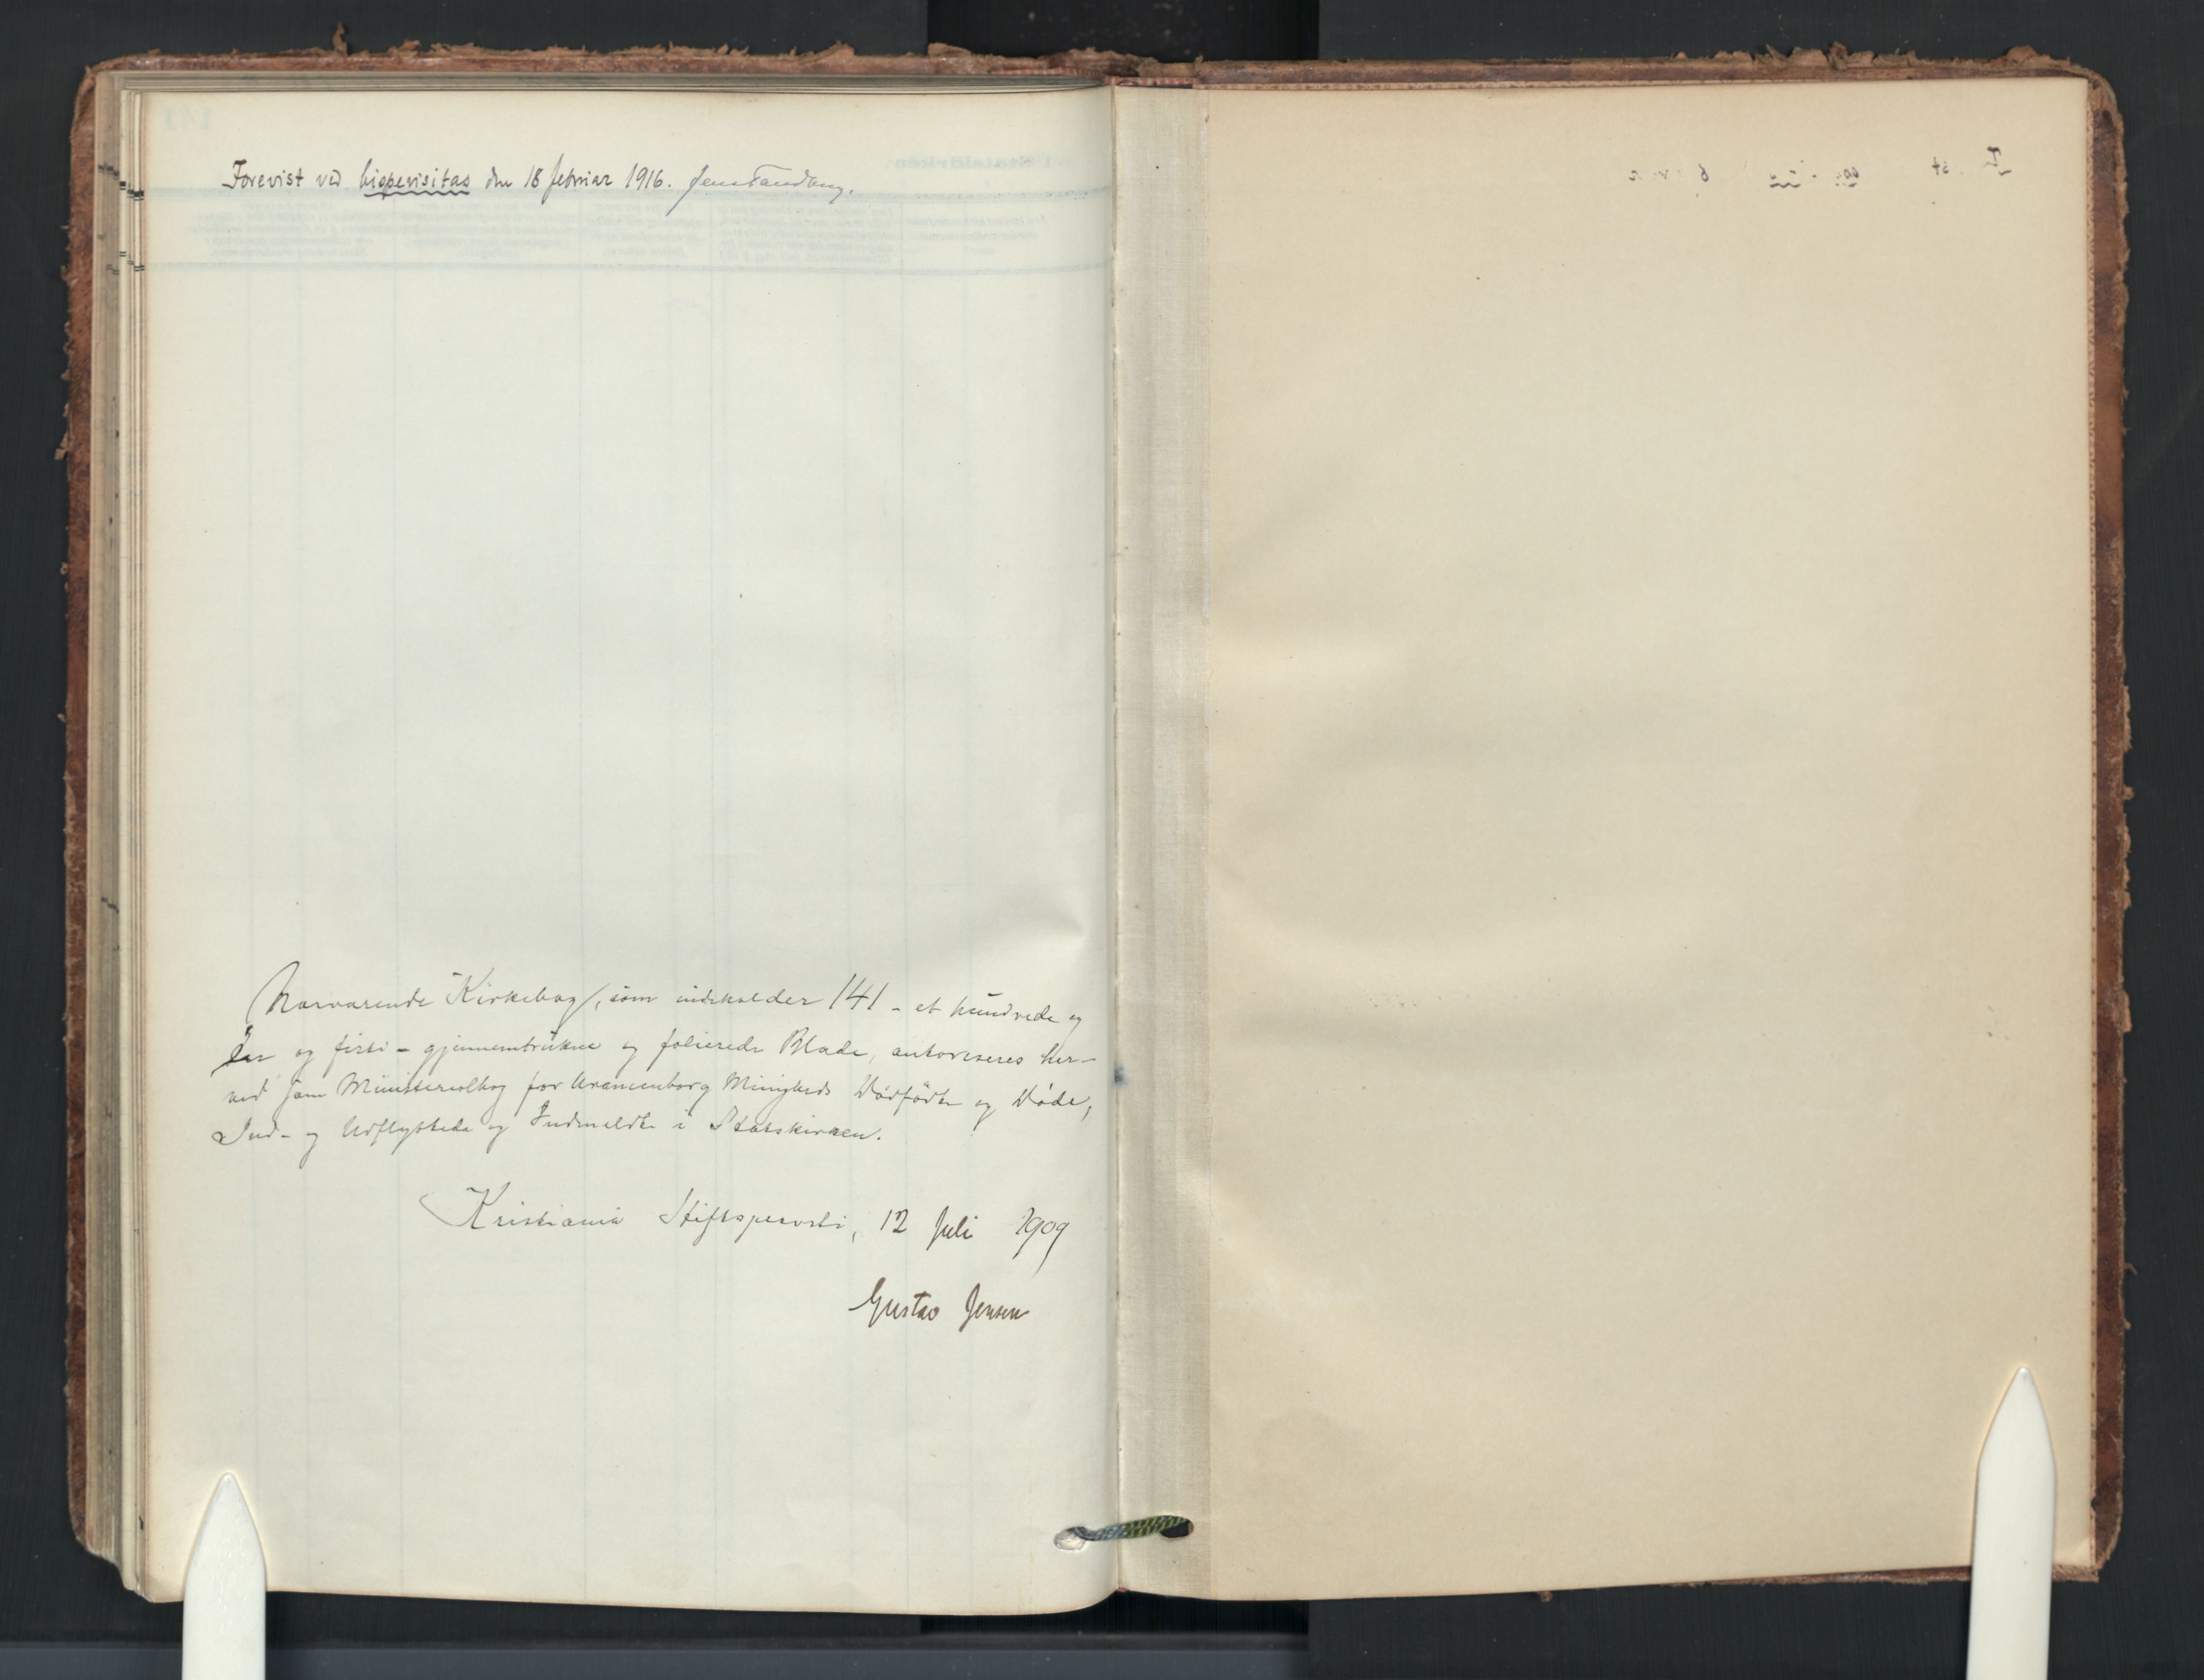 Forevist ved bispevisitas den 18 februar 1916. Jens Tandberg.
Nærværende Kirkebog, som indeholder 141 - et hundrede og
en og firti - gjennemtrukne og folierede Blade, autoriseres her-
ved som Ministerialbog for Uranienborg Menigheds Dødfødte og Døde,
Ind- og Udflyttede og Indmeldte i Statskirken.
Kristiania Stiftsprovsti, 12 Juli 1909
Gustav Jensen